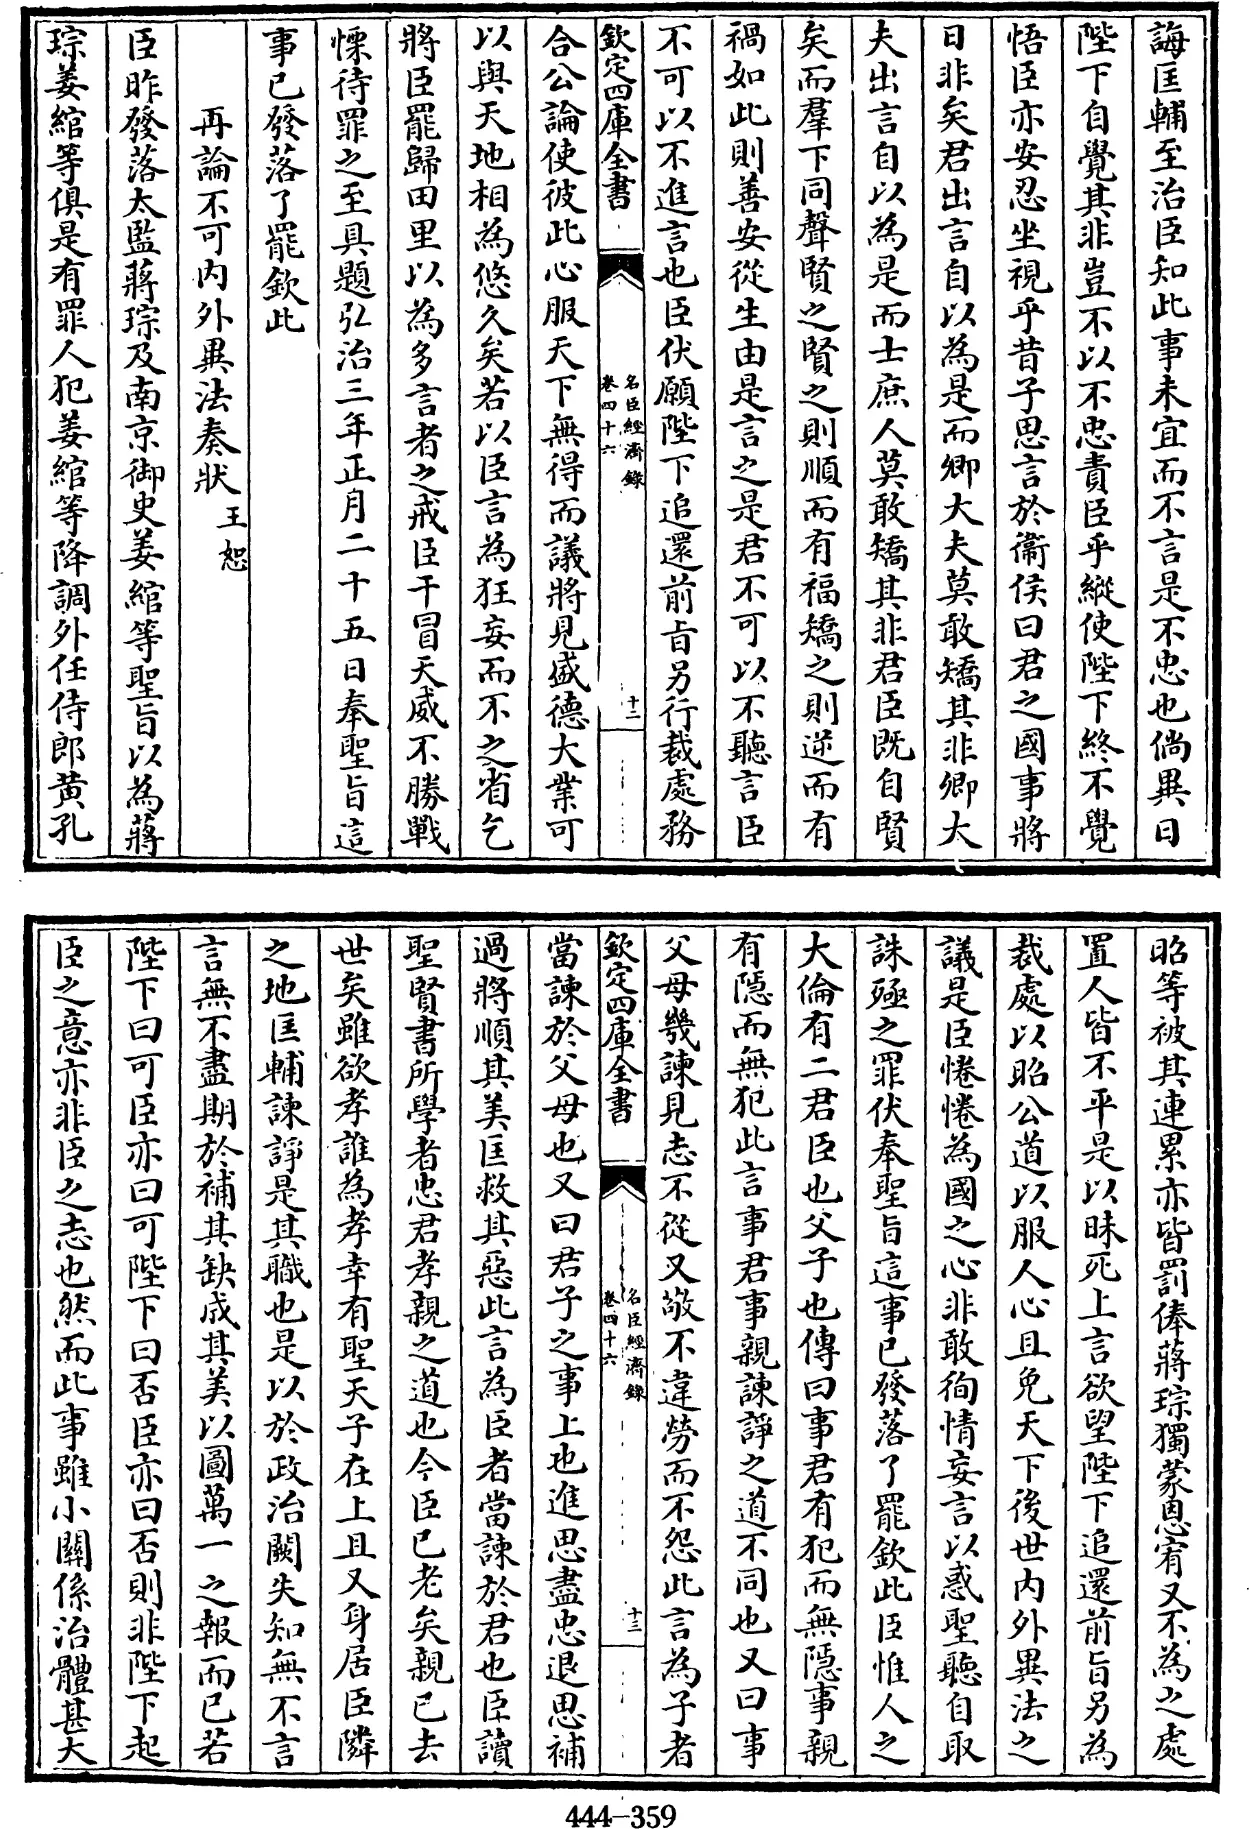 誨匡輔至治臣知此事未宜而不言是不忠也倘異日
陛下自覺其非豈不以不忠責臣乎縱使陛下終不覺
悟臣亦安忍坐視乎昔子思言於衞侯曰君之國事將
日非矣君出言自以為是而卿大夫莫敢矯其非卿大
夫出言自以為是而士庶人莫敢矯其非君臣既自賢
矣而羣下同聲賢之賢之則順而有福矯之則逆而有
禍如此則善安從生由是言之是君不可以不聽言臣
不可以不進言也臣伏願陛下追還前旨另行裁處務
欽定四庫全書
名臣經濟錄
卷四十六
十二
合公論使彼此心服天下無得而議將見盛德大業可
以與天地相為悠久矣若以臣言為狂妄而不之省乞
將臣罷歸田里以為多言者之戒臣干冒天威不勝戰
慄待罪之至具題弘治三年正月二十五日奉聖旨這
事已發落了罷欽此
再論不可內外異法奏狀 王恕
臣昨發落太監蔣琮及南京御史姜綰等聖旨以為蔣
琮姜綰等俱是有罪人犯姜綰等降調外任侍郎黄孔
昭等被其連累亦皆罰俸蔣琮獨蒙恩宥又不為之處
置人皆不平是以昧死上言欲望陛下追還前旨另為
裁處以昭公道以服人心且免天下後世内外異法之
議是臣惓惓為國之心非敢徇情妄言以惑聖聽自取
誅殛之罪伏奉聖旨這事已發落了罷欽此臣惟人之
大倫有二君臣也父子也傳曰事君有犯而無隱事親
有隱而無犯此言事君事親諫諍之道不同也又曰事
父母幾諫見志不從又敬不違勞而不怨此言為子者
欽定四庫全書
名臣經濟錄
卷四十六
十三
當諫於父母也又曰君子之事上也進思盡忠退思補
過將順其美匡救其惡此言為臣者當諫於君也臣讀
聖賢書所學者忠君孝親之道也今臣已老矣親已去
世矣雖欲孝誰為孝幸有聖天子在上且又身居臣隣
之地匡輔諫諍是其職也是以於政治闕失知無不言
言無不盡期於補其缺成其美以圖萬一之報而已若
陛下曰可臣亦曰可陛下曰否臣亦曰否則非陛下起
臣之意亦非臣之志也然而此事雖小關係治體甚大
444-359